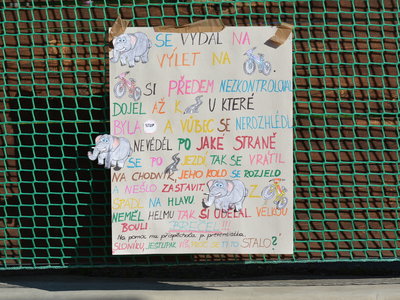 SE VYDAL NA
VÝLET NA .
SI PŘEDEM NEZKONTROLOVAL
DOJEL AŽ K U KTERÉ
BYLA STOP A VŮBEC SE NEROZHLÉDL
NEVĚDĚL PO JAKÉ STRANĚ
SE PO JEZDÍ, TAK SE VRÁTIL
NA CHODNÍK, JEHO KOLO SE ROZJELO
A NEŠLO ZASTAVIT. Z
SPADL NA HLAVU
NEMĚL HELMU TAK SI UDĚLAL VELKOU
BOULI. BREČEL!
Na pomoc mu přispěchala p.
SLONÍKU, JESTLIPAK VÍŠ, PROČ SE TI TO STALO?